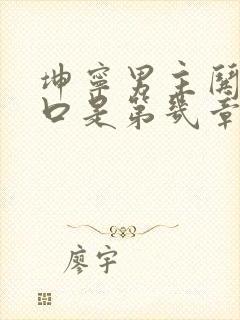 坤寧男主關
口是第幾章
廖宇